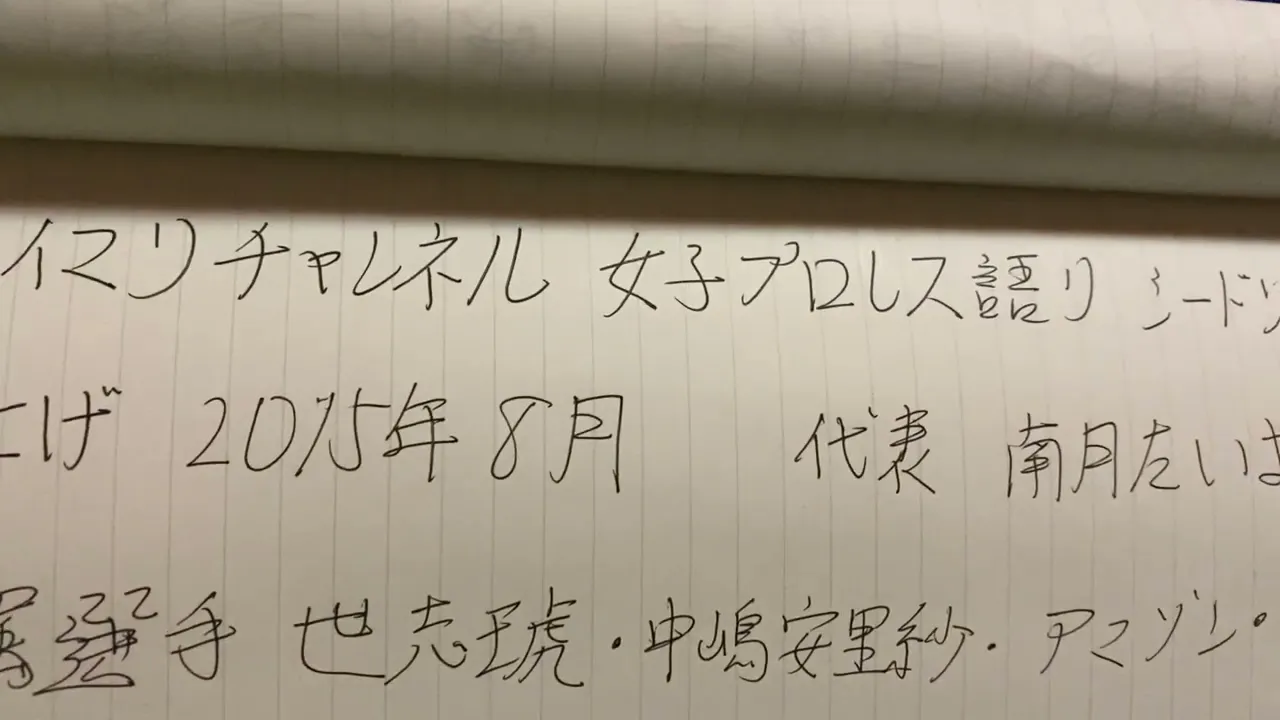 イマリチャンネル 女子プロレス語り シードリ
上げ 2015年8月 代表 南月たいよ
属選手 世志琥・中嶋安里紗・アマゾン・